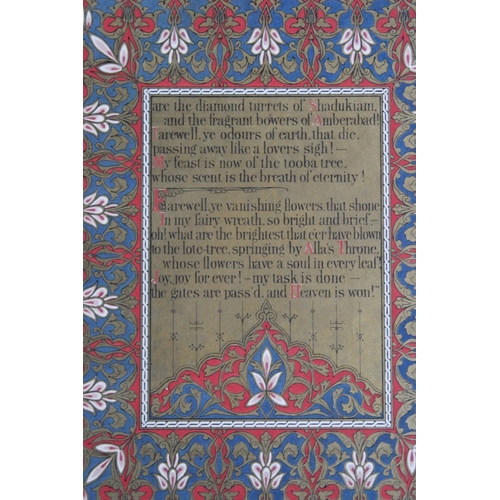 are the diamond turrets of Shadukiam,
and the fragrant bowers of Amberabad!
Farewell, ye odours of earth, that die,
passing away like a lovers sigh!—
My feast is now of the tooba tree,
whose scent is the breath of eternity!
Farewell, ye vanishing flowers that shone
In my fairy wreath, so bright and brief—
oh! what are the brightest that e'er have blown
to the lote-tree, springing by Alla's Throne,
whose flowers have a soul in every leaf!
Joy, joy for ever!—my task is done—
the gates are pass'd, and Heaven is won!"